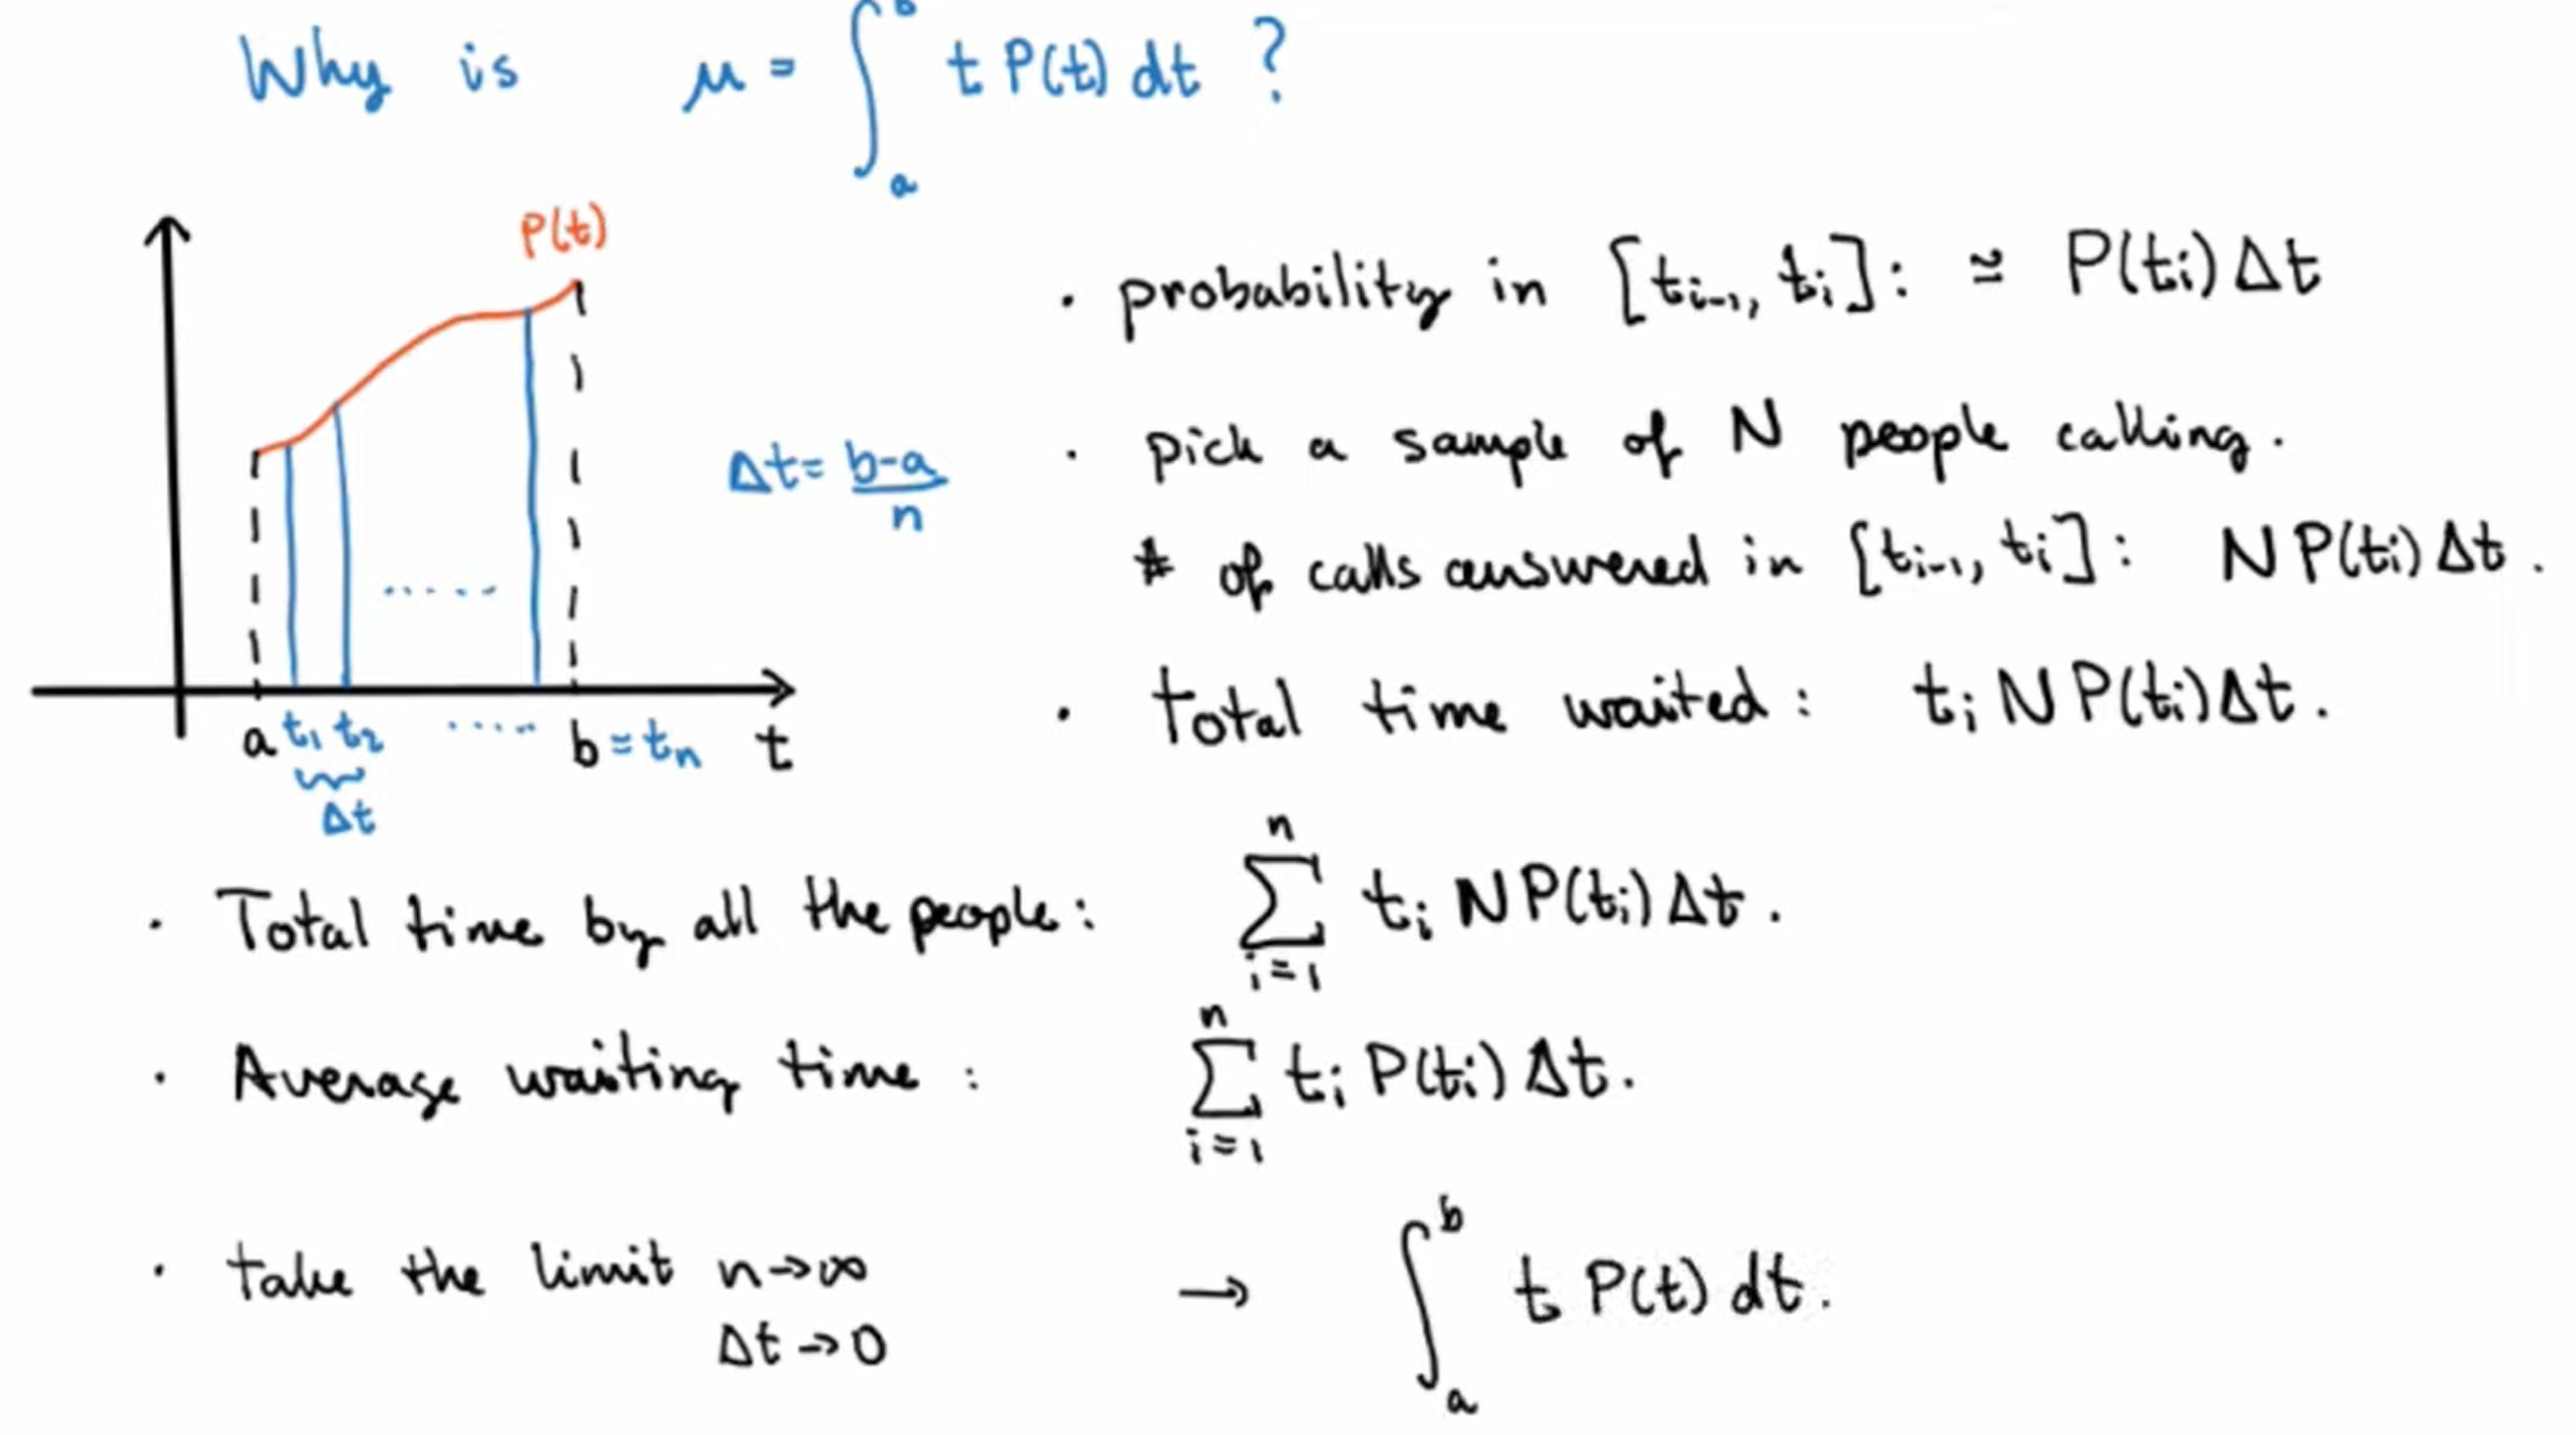 Why is μ = ∫_a^b t P(t) dt ?
P(t)
· probability in [t_{i-1}, t_i] : ≃ P(t_i) Δt
Δt = (b-a)/n
· pick a sample of N people calling.
# of calls answered in [t_{i-1}, t_i] : N P(t_i) Δt.
· total time waited : t_i N P(t_i) Δt.
a t_1 t_2 ..... b = t_n t
Δt
· Total time by all the people : ∑_{i=1}^n t_i N P(t_i) Δt.
· Average waiting time : ∑_{i=1}^n t_i P(t_i) Δt.
· take the limit n→∞ → ∫_a^b t P(t) dt.
Δt→0